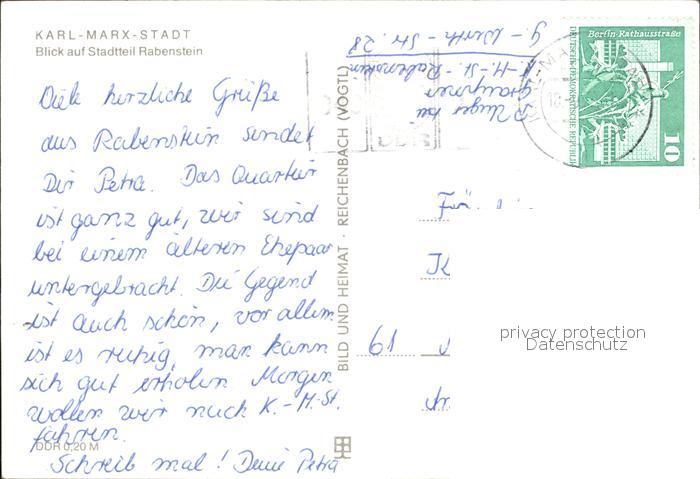 KARL-MARX-STADT
Blick auf Stadtteil Rabenstein
Viele herzliche Grüße
aus Rabenstein sendet
Dir Petra. Das Quartier
ist ganz gut, wir sind
bei einem älteren Ehepaar
untergebracht. Die Gegend
ist auch schön, vor allem
ist es ruhig, man kann
sich gut erholen. Morgen
wollen wir nach K.-M-St.
fahren.
Schreib mal! Deine Petra
DDR 0,20 M
BILD UND HEIMAT · REICHENBACH (VOGTL)
G.-Werth-Str. 28
K.-M-St.-Rabenstein
bei
DDR
Berlin-Rathausstraße
DEUTSCHE DEMOKRATISCHE REPUBLIK
10
61
privacy protection
Datenschutz